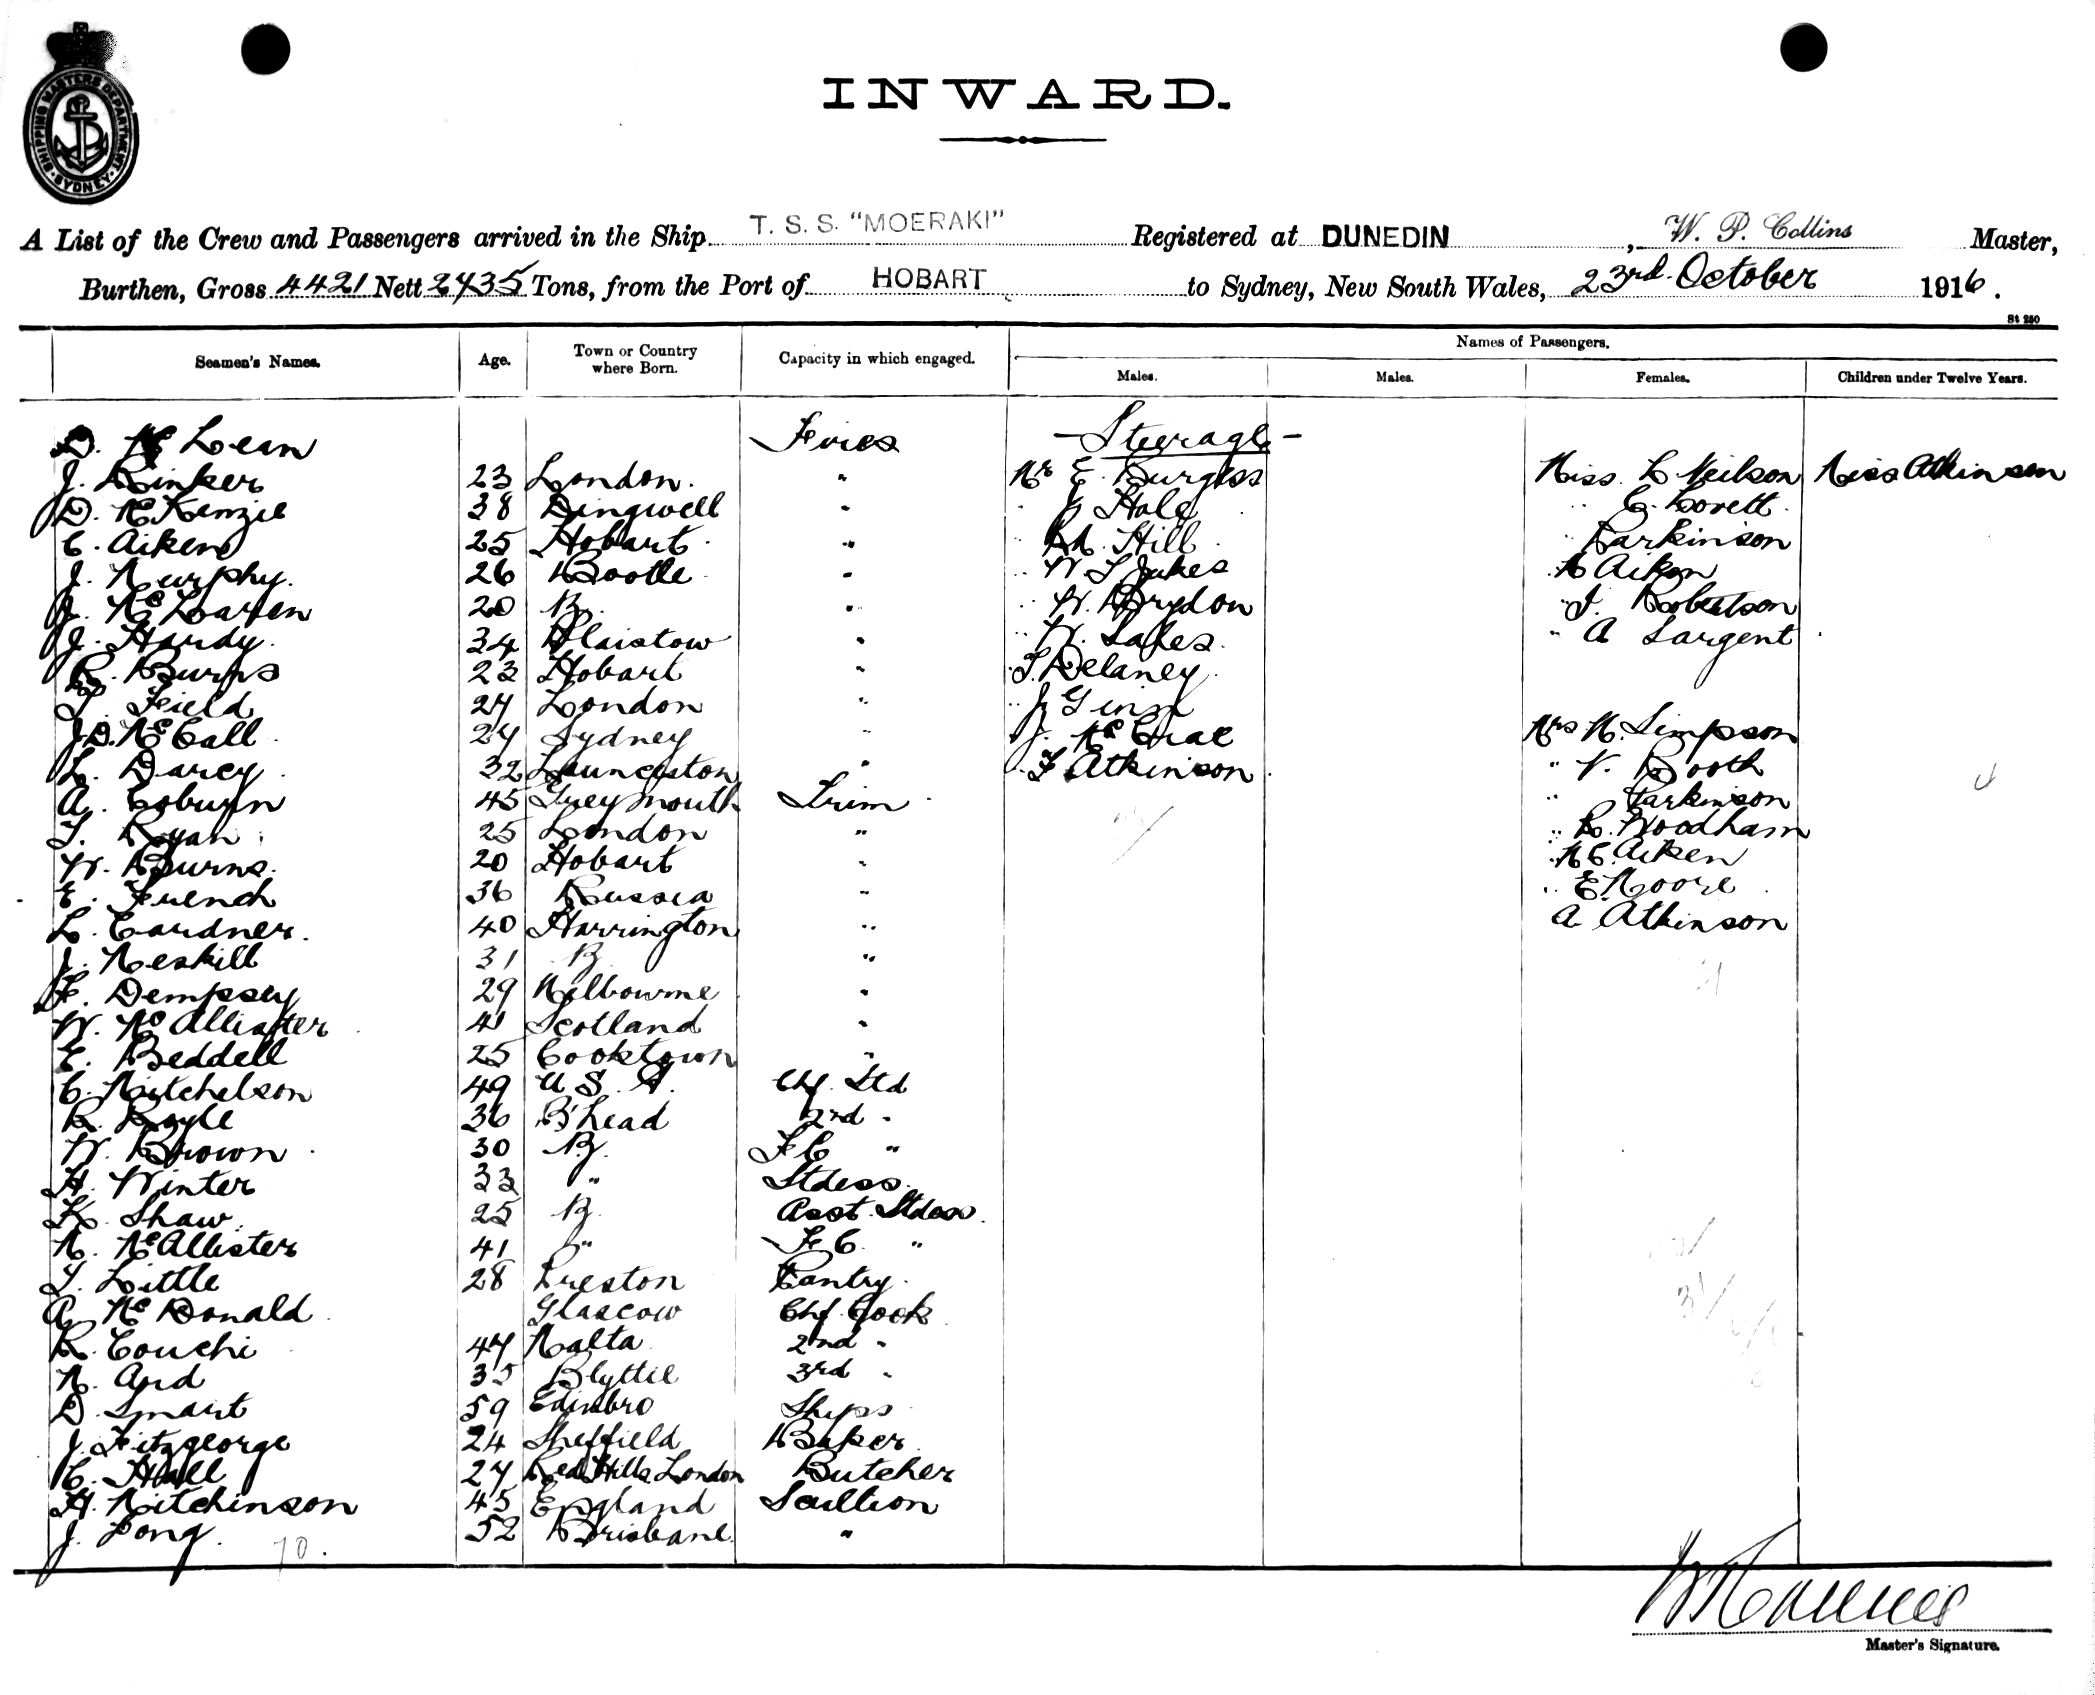 SHIPPING MASTERS DEPARTMENT SYDNEY
INWARD.
A List of the Crew and Passengers arrived in the Ship T. S. S. "MOERAKI" Registered at DUNEDIN, W. P. Collins Master,
Burthen, Gross 4421 Nett 2435 Tons, from the Port of HOBART to Sydney, New South Wales, 23rd October 1916.
St 250
Seamen's Names. Age. Town or Country where Born. Capacity in which engaged. Names of Passengers.
Males. Males. Females. Children under Twelve Years.
D. McLean Fires - Steerage -
J. Rinker 23 London. " Mr E. Burgess Miss L Neilson Miss Atkinson
D. McKenzie 38 Dingwell " J Hale " C. Lovett
C. Aiken 25 Hobart " Hill " Parkinson
J. Murphy. 26 Bootle " W S Jukes " M Aiken
J. McLaren 20 B. " " W. Brydon " J. Robertson
J. Hardy. 34 Plaistow " " W. Lakes. " A Sargent
R. Burns 23 Hobart " T. Delaney
Field 27 London " J Ginn
J.D. McCall 27 Sydney " J. McCrae Mrs M. Simpson
L. Darcy 32 Launceston " F Atkinson " V. Booth
A. Coburn 45 Greymouth Trim " Parkinson
T. Ryan 25 London " " R. Woodham
W. Burns. 20 Hobart " " M C. Aiken
E. French 36 Russia " " E Moore
L. Gardner. 40 Harrington " A Atkinson
J. Meskill 31 B "
F. Dempsey 29 Melbourne "
W. McAllister 41 Scotland "
E. Beddell 25 Cooktown "
C. Mitchelson 49 U S. A. Chf. Std
R. Royle 36 B'head 2nd "
W. Brown 30 B. F C "
H. Winter 33 " Stdess.
K. Shaw. 25 B Asst. Stdess.
M. McAllister 41 " F C. "
T. Little 28 Preston Pantry.
A. McDonald Glascow Chf. Cook
R. Couchi 47 Malta 2nd "
N. Aod 35 Blyttie 3rd "
D. Smart 59 Edinbro Ships
J. Fitzgeorge 24 Sheffield Baker
C. Hall 27 Red Hills London Butcher
H. Mitchinson 45 England Scullion
J. Long. 52 Brisbane. "
70.
W P Collins
Master's Signature.